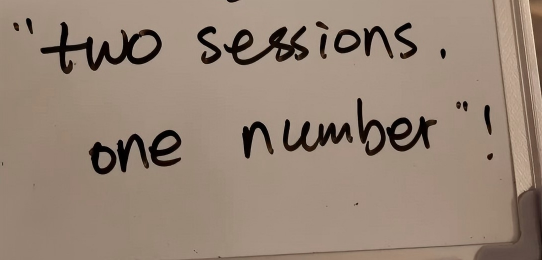 "two sessions.
one number"!